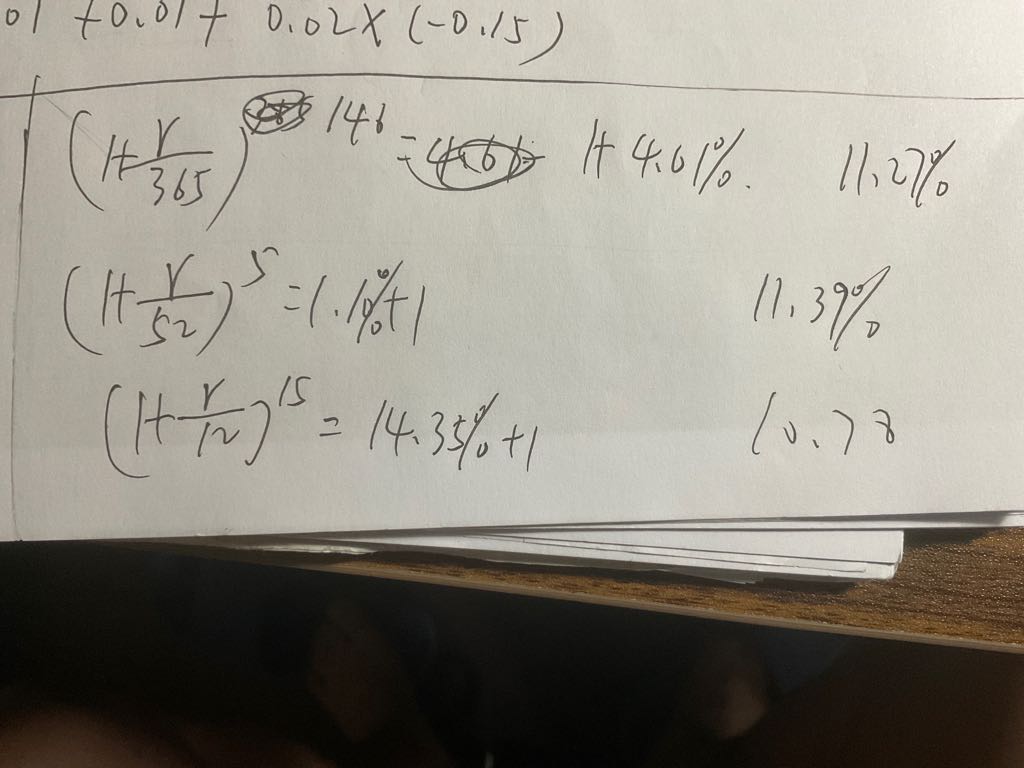 01 +0.01+ 0.02×(-0.15)
(1+r/365)^146 = 1+4.61%. 11.27%
(1+r/52)^5 = 1.1%+1 11.39%
(1+r/12)^15 = 14.35%+1 10.78